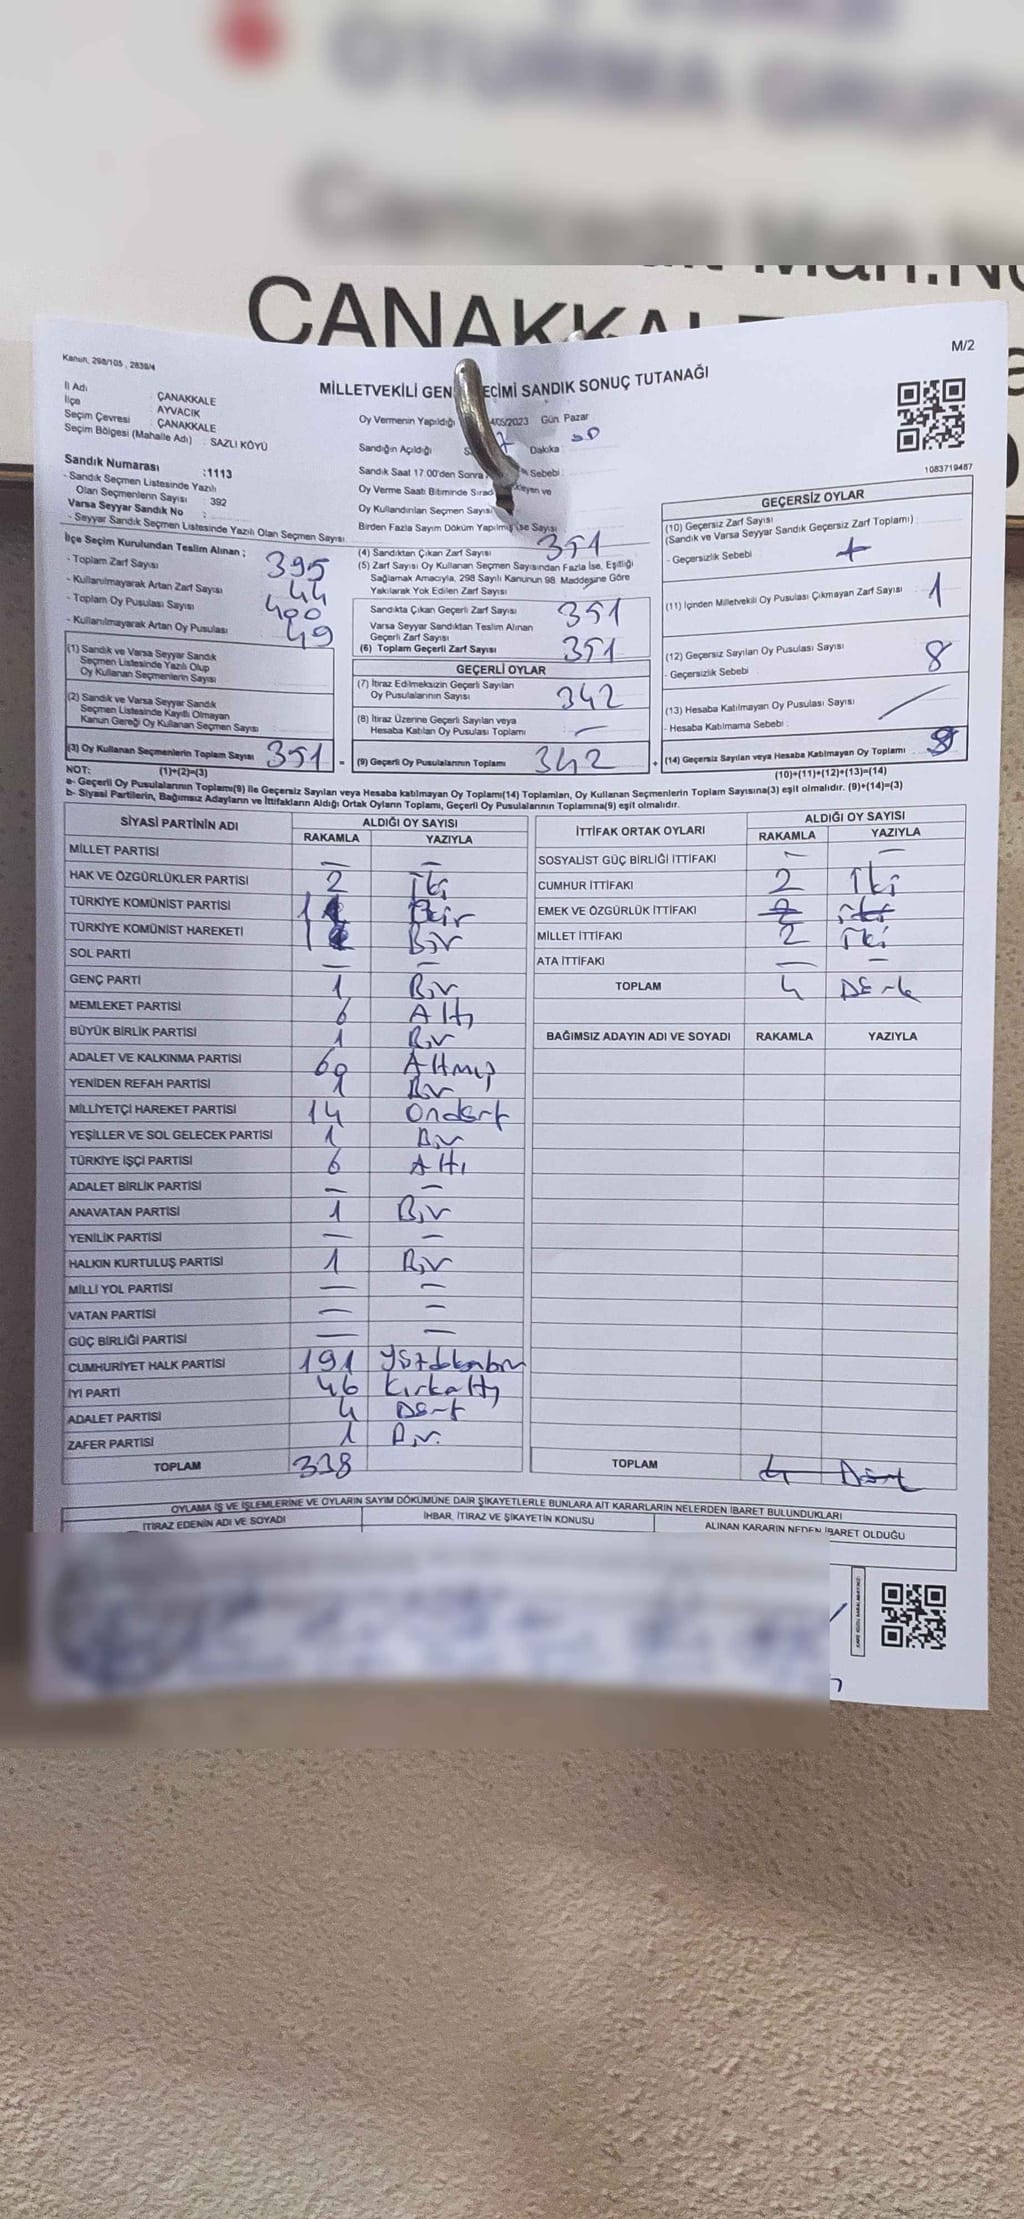 ÇANAKKALE
Kanun, 298/105 , 2839/4
M/2
MİLLETVEKİLİ GEN ECİMİ SANDIK SONUÇ TUTANAĞI
İl Adı ÇANAKKALE
İlçe AYVACIK
Seçim Çevresi : ÇANAKKALE
Seçim Bölgesi (Mahalle Adı) : SAZLI KÖYÜ
Sandık Numarası :1113
- Sandık Seçmen Listesinde Yazılı
Olan Seçmenlerin Sayısı : 392
Varsa Seyyar Sandık No :
- Seyyar Sandık Seçmen Listesinde Yazılı Olan Seçmen Sayısı
Oy Vermenin Yapıldığı /05/2023 Gün Pazar
Sandığın Açıldığı Dakika :
Sandık Saat 17.00'den Sonra Sebebi :
Oy Verme Saati Bitiminde Sırad ve
Oy Kullandırılan Seçmen Sayısı
Birden Fazla Sayım Döküm Yapılmış ise Sayısı
1083719487
İlçe Seçim Kurulundan Teslim Alınan ;
- Toplam Zarf Sayısı 395
- Kullanılmayarak Artan Zarf Sayısı 44
- Toplam Oy Pusulası Sayısı 400
- Kullanılmayarak Artan Oy Pusulası 49
(1) Sandık ve Varsa Seyyar Sandık
Seçmen Listesinde Yazılı Olup
Oy Kullanan Seçmenlerin Sayısı
(2) Sandık ve Varsa Seyyar Sandık
Seçmen Listesinde Kayıtlı Olmayan
Kanun Gereği Oy Kullanan Seçmen Sayısı
(3) Oy Kullanan Seçmenlerin Toplam Sayısı 351
(1)+(2)=(3)
(4) Sandıktan Çıkan Zarf Sayısı 351
(5) Zarf Sayısı Oy Kullanan Seçmen Sayısından Fazla İse, Eşitliği
Sağlamak Amacıyla, 298 Sayılı Kanunun 98. Maddesine Göre
Yakılarak Yok Edilen Zarf Sayısı
Sandıkta Çıkan Geçerli Zarf Sayısı 351
Varsa Seyyar Sandıktan Teslim Alınan
Geçerli Zarf Sayısı
(6) Toplam Geçerli Zarf Sayısı 351
GEÇERLİ OYLAR
(7) İtiraz Edilmeksizin Geçerli Sayılan
Oy Pusulalarının Sayısı 342
(8) İtiraz Üzerine Geçerli Sayılan veya
Hesaba Katılan Oy Pusulası Toplamı —
= (9) Geçerli Oy Pusulalarının Toplamı 342
GEÇERSİZ OYLAR
(10) Geçersiz Zarf Sayısı
(Sandık ve Varsa Seyyar Sandık Geçersiz Zarf Toplamı) :
- Geçersizlik Sebebi
(11) İçinden Milletvekili Oy Pusulası Çıkmayan Zarf Sayısı 1
(12) Geçersiz Sayılan Oy Pusulası Sayısı 8
- Geçersizlik Sebebi
(13) Hesaba Katılmayan Oy Pusulası Sayısı
- Hesaba Katılmama Sebebi :
+ (14) Geçersiz Sayılan veya Hesaba Katılmayan Oy Toplamı
(10)+(11)+(12)+(13)=(14)
NOT:
a- Geçerli Oy Pusulalarının Toplamı(9) ile Geçersiz Sayılan veya Hesaba katılmayan Oy Toplamı(14) Toplamları, Oy Kullanan Seçmenlerin Toplam Sayısına(3) eşit olmalıdır. (9)+(14)=(3)
b- Siyasi Partilerin, Bağımsız Adayların ve İttifakların Aldığı Ortak Oyların Toplamı, Geçerli Oy Pusulalarının Toplamına(9) eşit olmalıdır.
SİYASİ PARTİNİN ADI ALDIĞI OY SAYISI
RAKAMLA YAZIYLA
MİLLET PARTİSİ — —
HAK VE ÖZGÜRLÜKLER PARTİSİ 2 İki
TÜRKİYE KOMÜNİST PARTİSİ 1 Bir
TÜRKİYE KOMÜNİST HAREKETİ 1 Bir
SOL PARTİ — —
GENÇ PARTİ 1 Bir
MEMLEKET PARTİSİ 6 Altı
BÜYÜK BİRLİK PARTİSİ 1 Bir
ADALET VE KALKINMA PARTİSİ 60 Altmış
YENİDEN REFAH PARTİSİ 1 Bir
MİLLİYETÇİ HAREKET PARTİSİ 14 Ondört
YEŞİLLER VE SOL GELECEK PARTİSİ 1 Bir
TÜRKİYE İŞÇİ PARTİSİ 6 Altı
ADALET BİRLİK PARTİSİ — —
ANAVATAN PARTİSİ 1 Bir
YENİLİK PARTİSİ — —
HALKIN KURTULUŞ PARTİSİ 1 Bir
MİLLİ YOL PARTİSİ — —
VATAN PARTİSİ — —
GÜÇ BİRLİĞİ PARTİSİ — —
CUMHURİYET HALK PARTİSİ 191 Yüzdoksanbir
İYİ PARTİ 46 Kırkaltı
ADALET PARTİSİ 4 Dört
ZAFER PARTİSİ 1 Bir
TOPLAM 338
İTTİFAK ORTAK OYLARI ALDIĞI OY SAYISI
RAKAMLA YAZIYLA
SOSYALİST GÜÇ BİRLİĞİ İTTİFAKI — —
CUMHUR İTTİFAKI 2 İki
EMEK VE ÖZGÜRLÜK İTTİFAKI 2 iki
MİLLET İTTİFAKI 2 İki
ATA İTTİFAKI — —
TOPLAM 4 Dört
BAĞIMSIZ ADAYIN ADI VE SOYADI RAKAMLA YAZIYLA
TOPLAM 4 Dört
OYLAMA İŞ VE İŞLEMLERİNE VE OYLARIN SAYIM DÖKÜMÜNE DAİR ŞİKAYETLERLE BUNLARA AİT KARARLARIN NELERDEN İBARET BULUNDUKLARI
İTİRAZ EDENİN ADI VE SOYADI İHBAR, İTİRAZ VE ŞİKAYETİN KONUSU ALINAN KARARIN NEDEN İBARET OLDUĞU